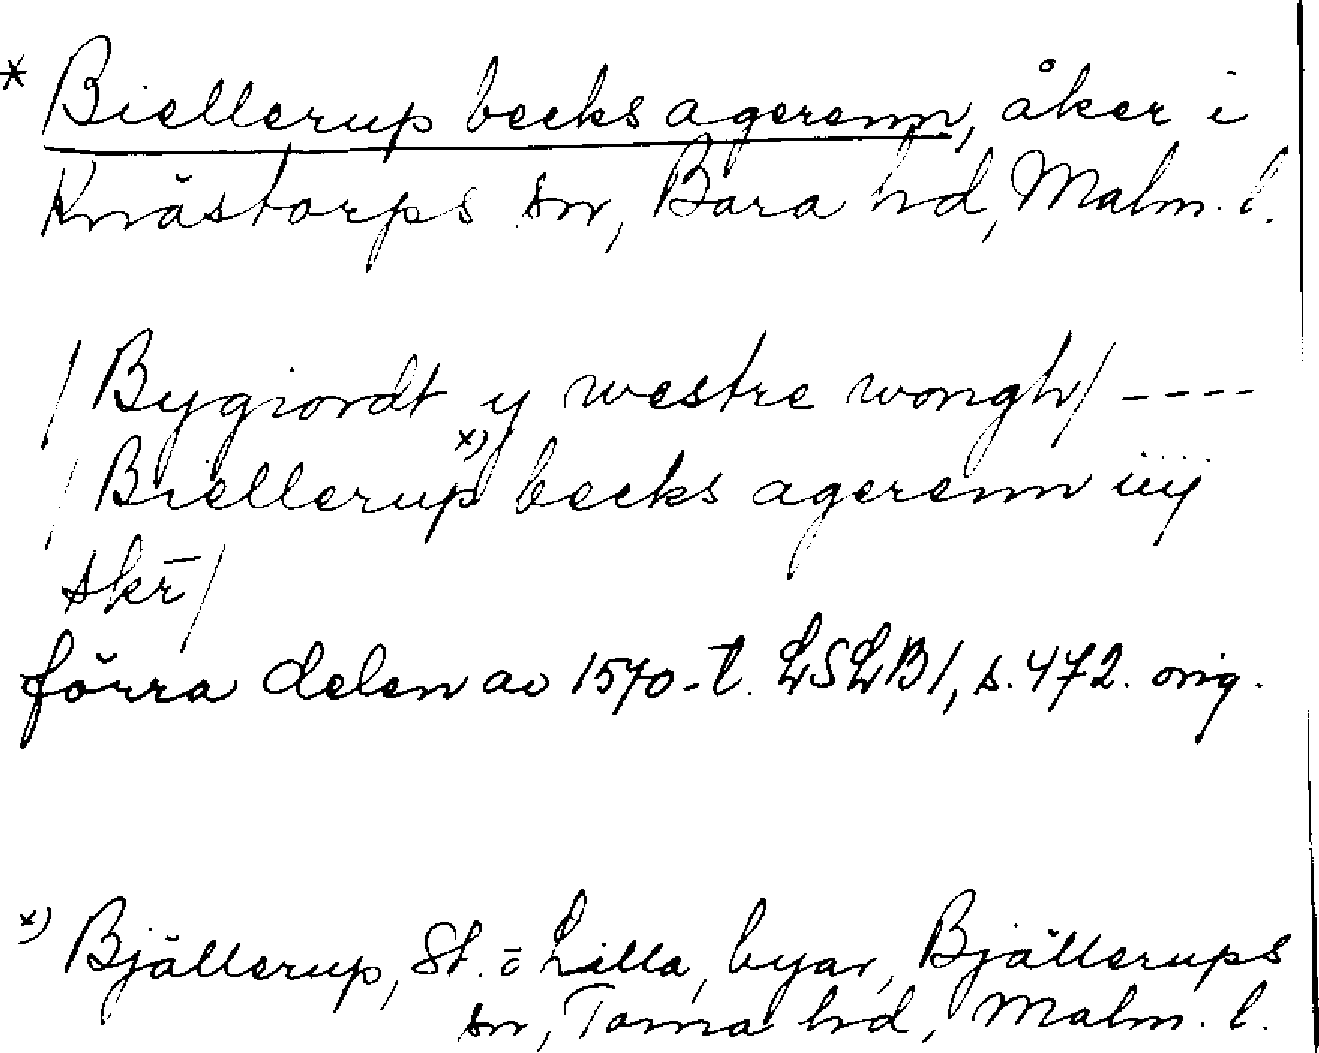 * Biellerup becks agerenn, åker i
Knästorps sn, Bara hd, Malm. l.
/ Bygiordt y westre wongh / ----
/ Biellerup x) becks agerenn iiij
skr̄ /
förra delen av 1570-t. LSLB 1, s. 472. orig.
x) Bjällerup, St. o Lilla, byar, Bjällerups
sn, Torna hd, Malm. l.